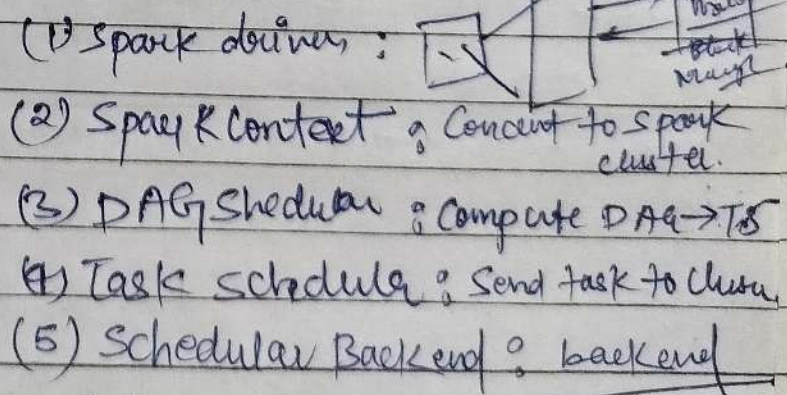 (1) Spark driver :
(2) Spark Context : Concent to spark
cluster.
(3) DAG Shedular : Compute DAG→TS
(4) Task schedular : Send task to Clusu
(5) Schedular Backend : backend